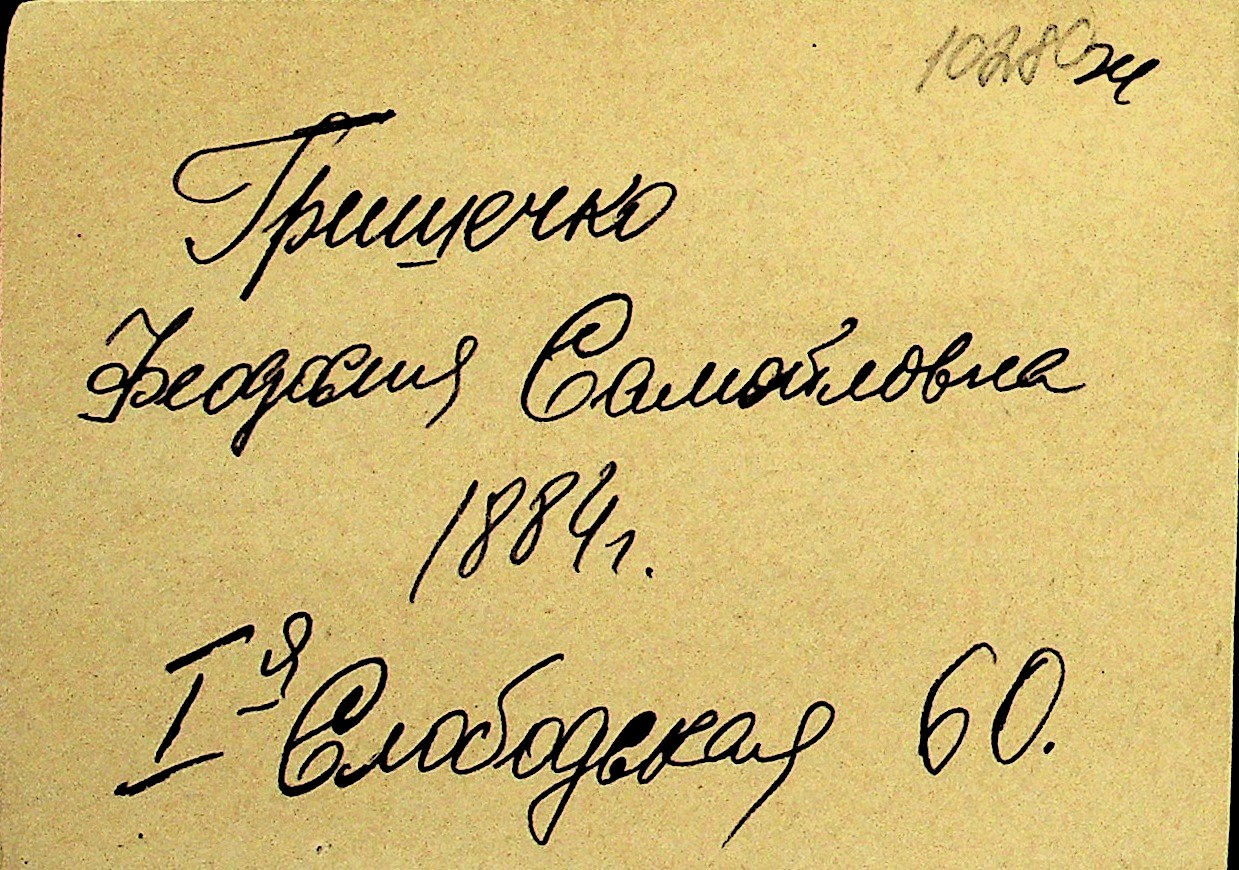 10280ж
Гришечко
Феодосия Самойловна
1884г.
I-я Слободская 60.